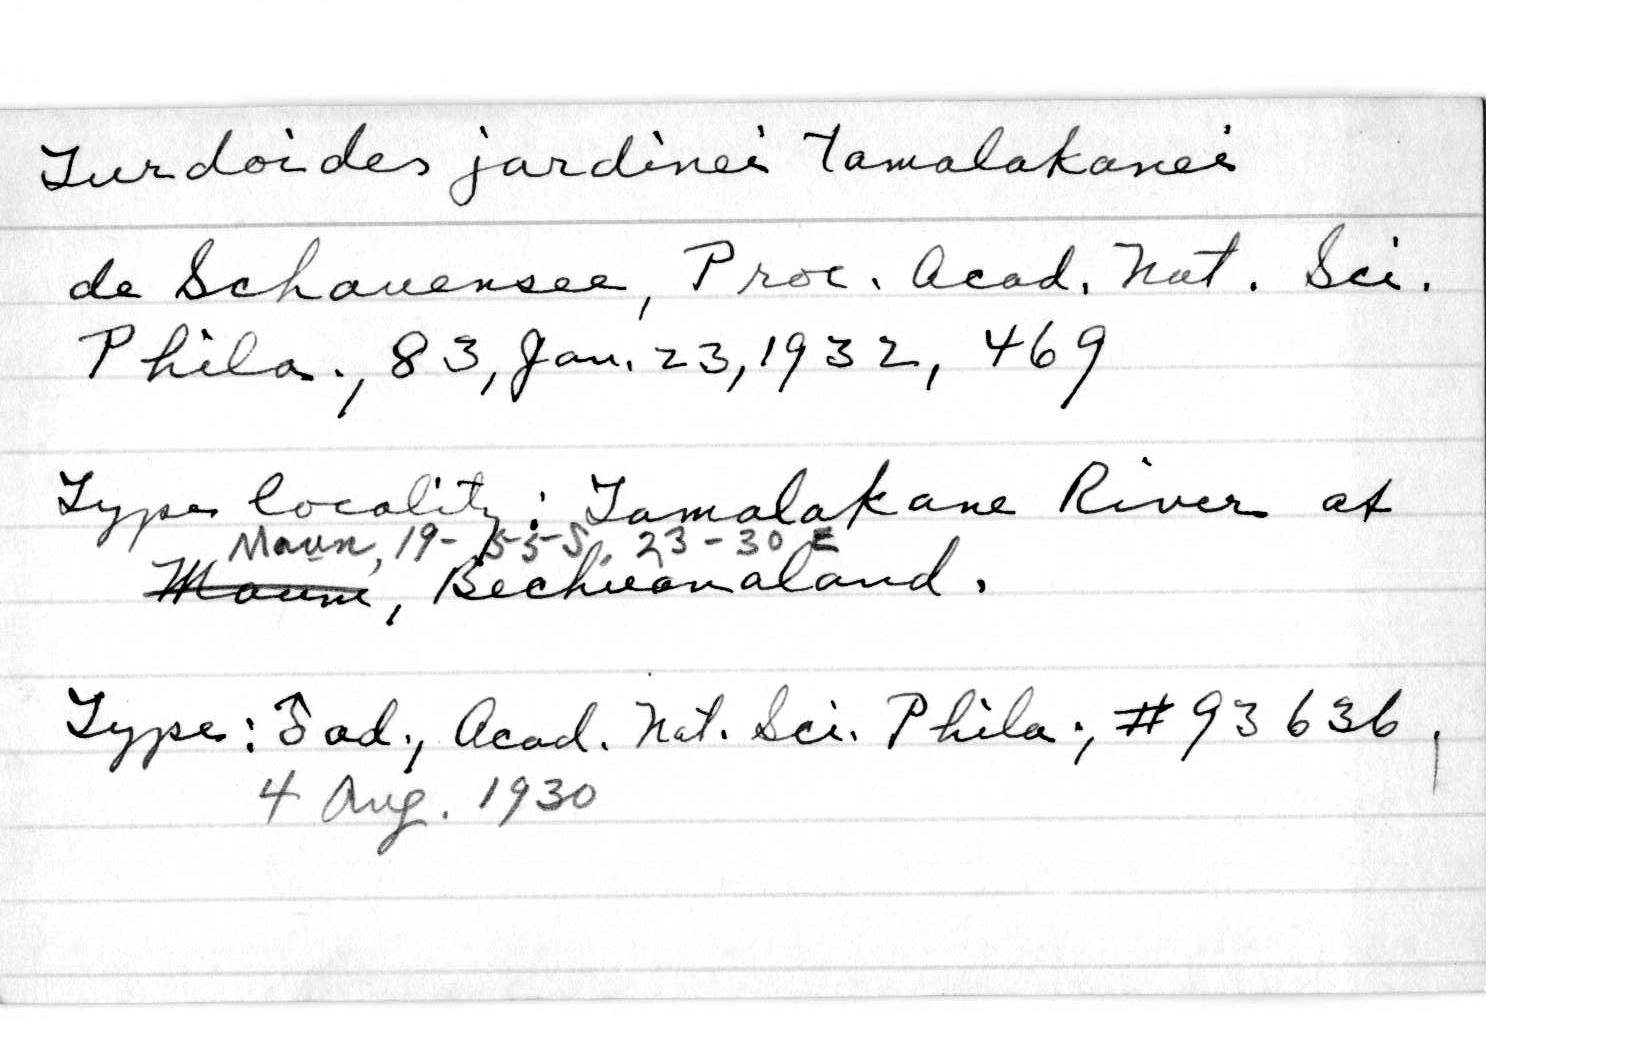 Turdoides jardinei tamalakanei
de Schauensee, Proc. Acad. Nat. Sci.
Phila., 83, Jan. 23, 1932, 469
Type locality: Tamalakane River at
Maun, 19-55 S, 23-30 E
Maune, Bechuanaland.
Type: ♂ ad., Acad. Nat. Sci. Phila., #93636,
4 Aug. 1930